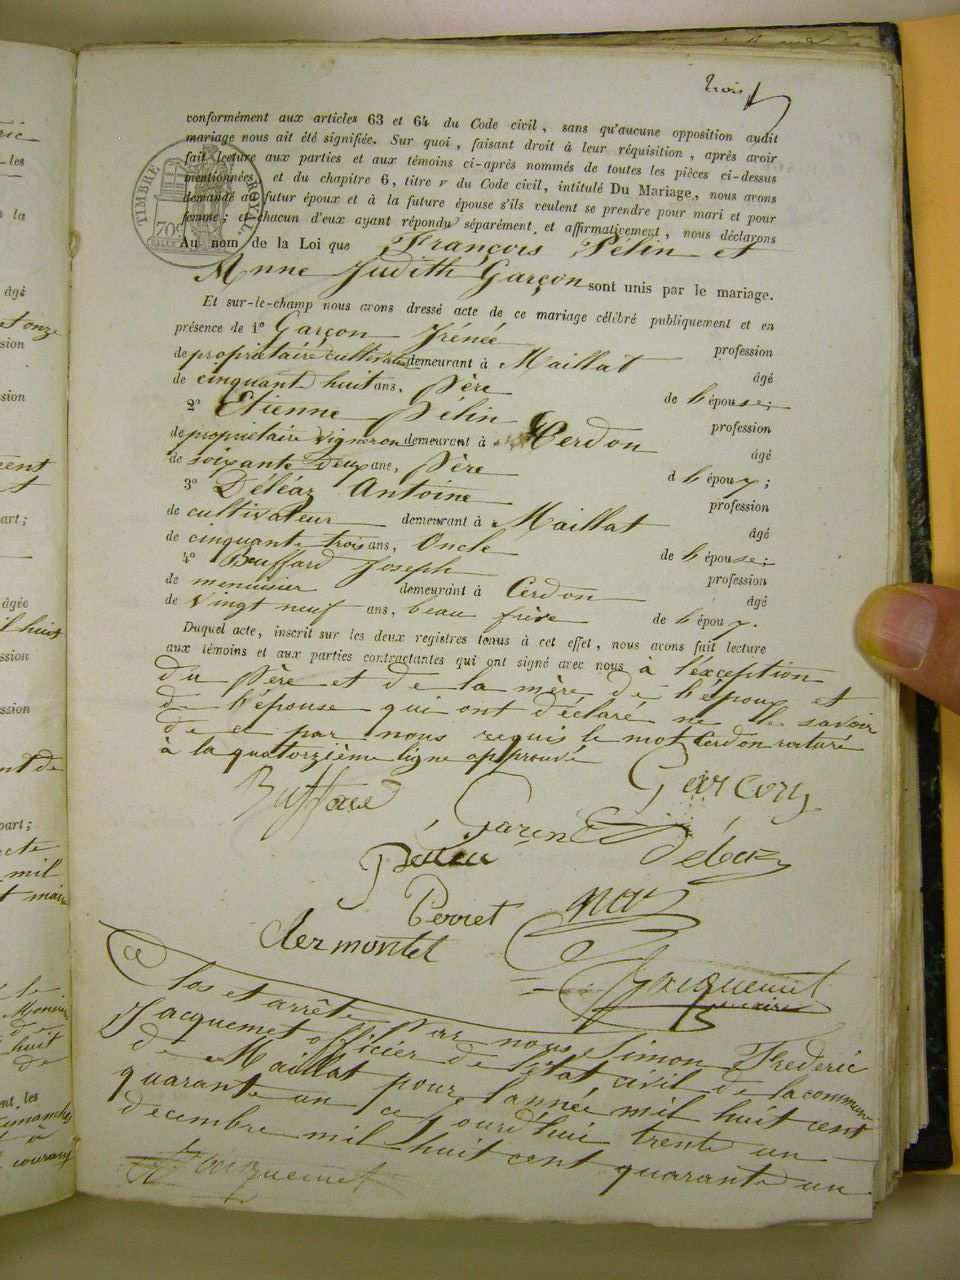 trois
conformément aux articles 63 et 64 du Code civil, sans qu'aucune opposition audit
mariage nous ait été signifiée. Sur quoi, faisant droit à leur réquisition, après avoir
fait lecture aux parties et aux témoins ci-après nommés de toutes les pièces ci-dessus
mentionnées, et du chapitre 6, titre v du Code civil, intitulé Du Mariage, nous avons
demandé au futur époux et à la future épouse s'ils veulent se prendre pour mari et pour
femme; et chacun d'eux ayant répondu séparément et affirmativement, nous déclarons
TIMBRE ROYAL
Au nom de la Loi que François Pélin et
Anne Judith Garçon sont unis par le mariage.
Et sur-le-champ nous avons dressé acte de ce mariage célébré publiquement et en
présence de 1° Garçon Irénée profession
de propriétaire cultivateur demeurant à Maillat âgé
de cinquante huit ans, Père de l'épouse;
2° Etienne Pélin profession
de propriétaire vigneron demeurant à Cerdon âgé
de soixante deux ans, Père d l'époux;
3° Déléaz Antoine profession
de cultivateur demeurant à Maillat âgé
de cinquante trois ans, Oncle de l'épouse;
4° Bouffard Joseph profession
de menuisier demeurant à Cerdon âgé
de Vingt neuf ans, beau frère de l'époux.
Duquel acte, inscrit sur les deux registres tenus à cet effet, nous avons fait lecture
aux témoins et aux parties contractantes qui ont signé avec nous à l'exception
du Père et de la mère de l'époux et
de l'épouse qui ont déclaré ne le savoir
de ce par nous requis le mot Cerdon raturé
à la quatorzième ligne approuvé
Garcon
Perret
Clermontel
Jacquemet
maire
Clos et arrêté Par nous Simon Frederic
Jacquemet officier de l'état civil de la commune
de Maillat pour l'année mil huit cent
quarante un ce jourd'hui trente un
decembre mil huit cent quarante un
Jacquemet